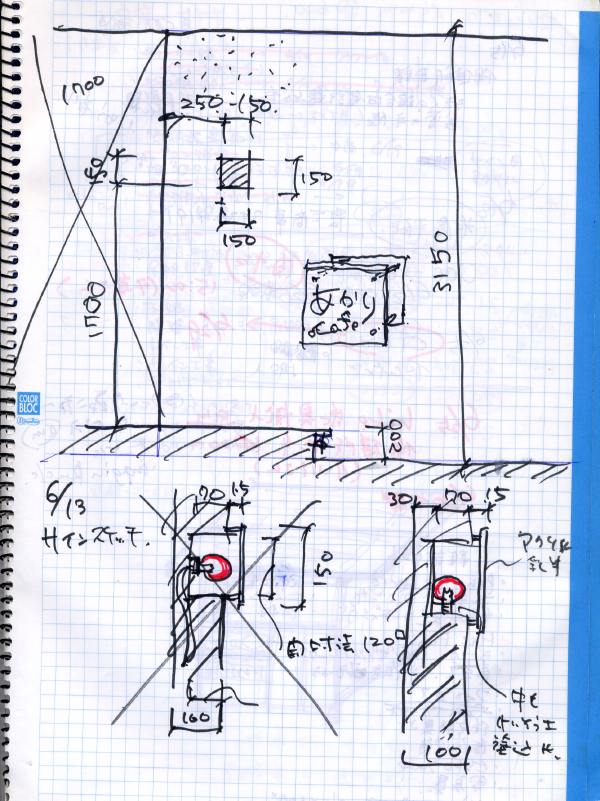 1700
250
150
150
150
150
1700
3150
あかり
cafe
200
COLOR
BLOC
6/13
サインスケッチ.
70
15
150
開口寸法 120□
100
30
70
15
アクリル
乳半
100